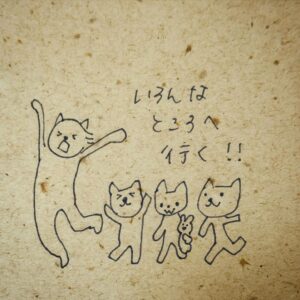 いろんな
ところへ
行く!!